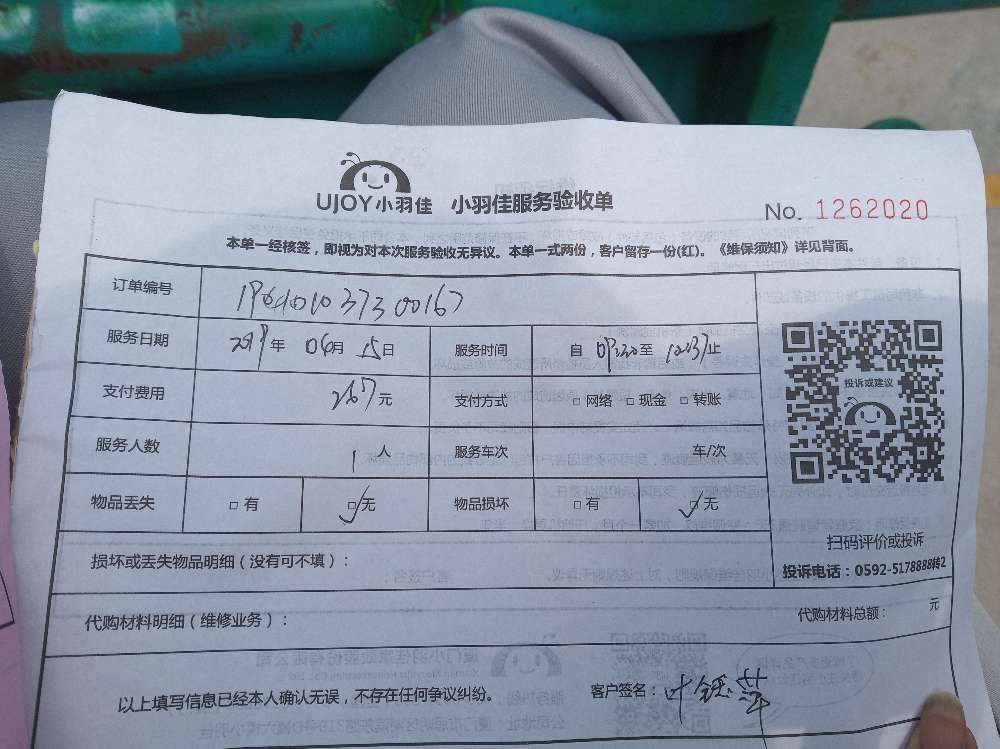 UJOY小羽佳 小羽佳服务验收单
No. 1262020
本单一经核签，即视为对本次服务验收无异议。本单一式两份，客户留存一份(红)。《维保须知》详见背面。
订单编号
服务日期 年 月 15日 服务时间 自 至 止
支付费用 267元 支付方式 □网络 □现金 □转账
服务人数 1 人 服务车次 车/次
物品丢失 □有 ☑无 物品损坏 □有 ☑无
损坏或丢失物品明细（没有可不填）：
投诉或建议
扫码评价或投诉
投诉电话：0592-5178888转2
代购材料明细（维修业务）：
代购材料总额： 元
以上填写信息已经本人确认无误，不存在任何争议纠纷。
客户签名：叶